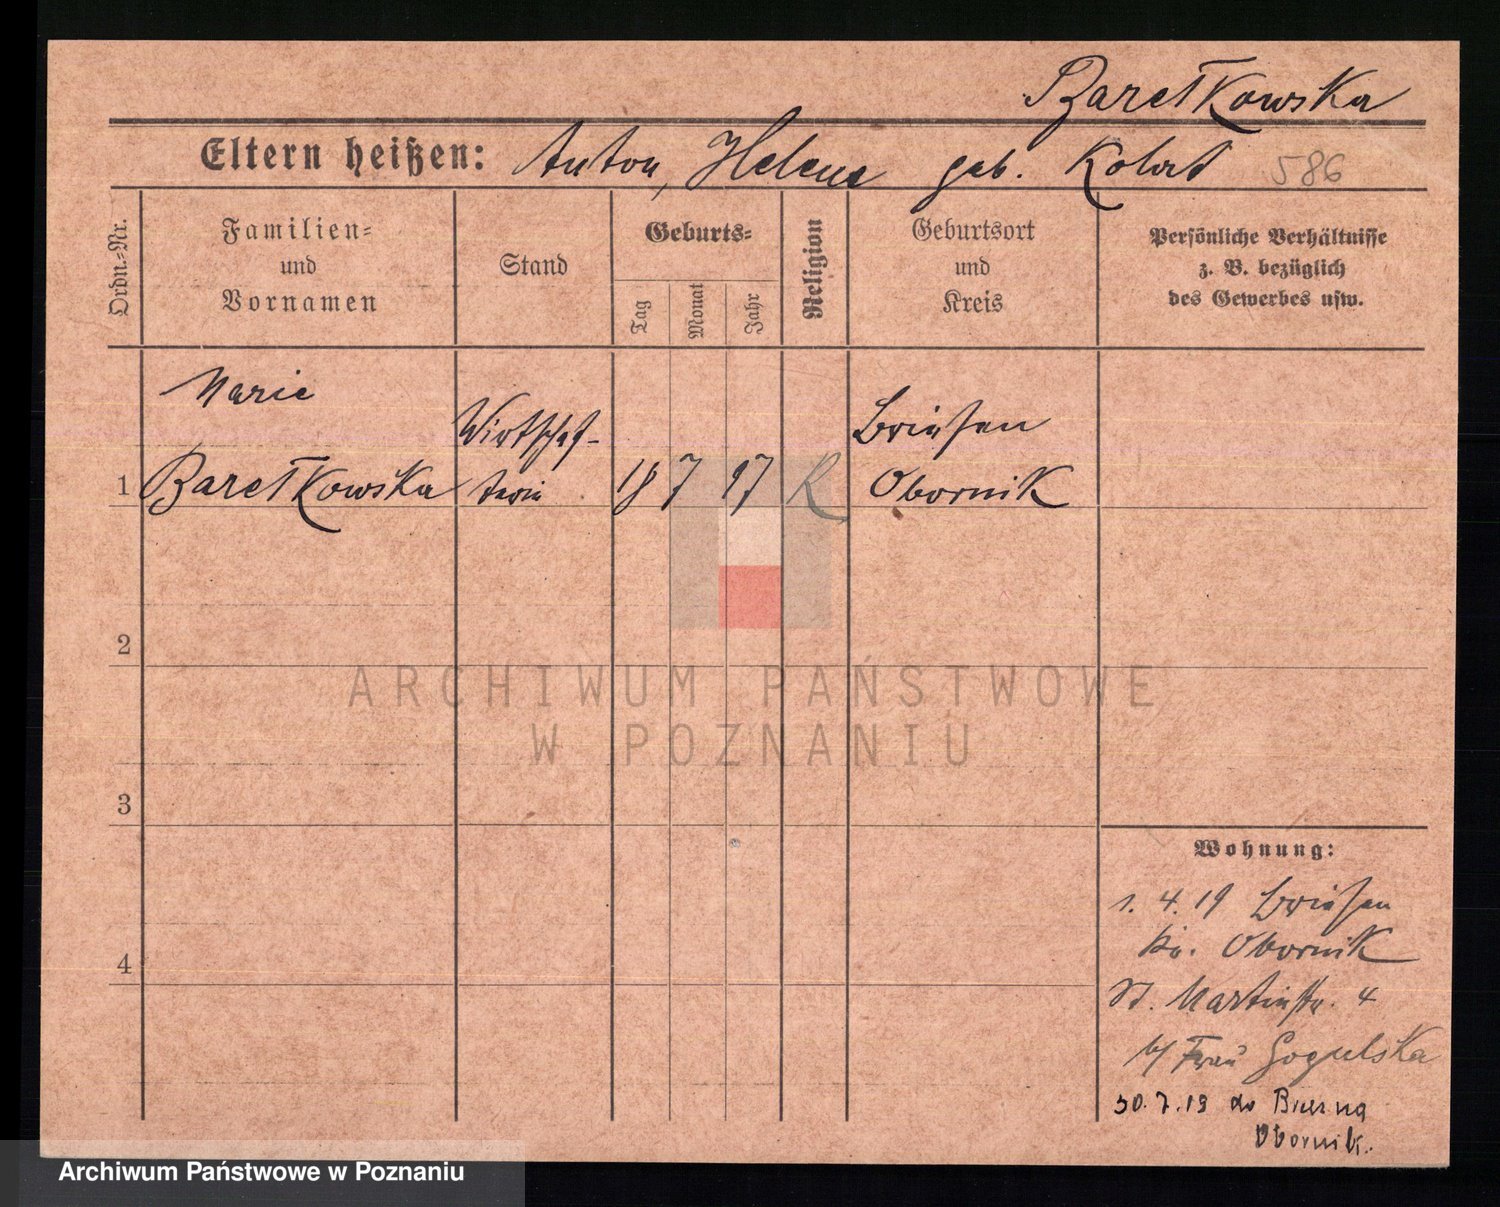 Baretkowska
Eltern heißen: Anton, Helene geb. Kolat 586
Ordn.-Nr.
Familien-
und
Vornamen
Stand
Geburts-
Tag
Monat
Jahr
Religion
Geburtsort
und
Kreis
Persönliche Verhältnisse
z. B. bezüglich
des Gewerbes usw.
Marie
Wirtschaf- Briesen
1 Baretkowska terin 18 7 97 K Obornik
2
3
4
Wohnung:
1. 4. 19 Briesen
Kr. Obornik
St. Martinstr. 4
b/ Frau Gogulska
30.7.19 do
Obornik.
ARCHIWUM PAŃSTWOWE
W POZNANIU
Archiwum Państwowe w Poznaniu